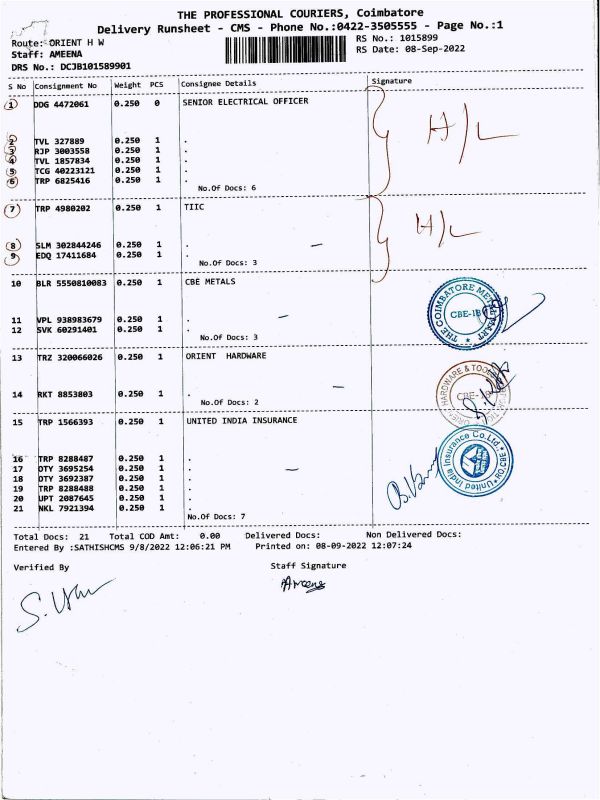 THE PROFESSIONAL COURIERS, Coimbatore
Delivery Runsheet - CMS - Phone No.:0422-3505555 - Page No.:1
Route: ORIENT H W
RS No.: 1015899
Staff: AMEENA
RS Date: 08-Sep-2022
DRS No.: DCJB101589901
S No Consignment No Weight PCS Consignee Details Signature
1 DDG 4472061 0.250 0 SENIOR ELECTRICAL OFFICER
H/L
2 TVL 327889 0.250 1 .
3 RJP 3003558 0.250 1 .
4 TVL 1857834 0.250 1 .
5 TCG 40223121 0.250 1 .
6 TRP 6825416 0.250 1 .
No.Of Docs: 6
7 TRP 4980202 0.250 1 TIIC
H/L
8 SLM 302844246 0.250 1 .
9 EDQ 17411684 0.250 1 .
No.Of Docs: 3
10 BLR 5550810083 0.250 1 CBE METALS
THE COIMBATORE METAL MART
CBE-1
11 VPL 938983679 0.250 1 .
12 SVK 60291401 0.250 1 .
No.Of Docs: 3
13 TRZ 320066026 0.250 1 ORIENT HARDWARE
HARDWARE & TOOLS
CBE-1
14 RKT 8853803 0.250 1 .
No.Of Docs: 2
15 TRP 1566393 0.250 1 UNITED INDIA INSURANCE
United India Insurance Co.Ltd., RO,CBE
16 TRP 8288487 0.250 1 .
17 OTY 3695254 0.250 1 .
18 OTY 3692387 0.250 1 .
19 TRP 8288488 0.250 1 .
20 UPT 2087645 0.250 1 .
21 NKL 7921394 0.250 1 .
No.Of Docs: 7
Total Docs: 21 Total COD Amt: 0.00 Delivered Docs: Non Delivered Docs:
Entered By :SATHISHCMS 9/8/2022 12:06:21 PM Printed on: 08-09-2022 12:07:24
Verified By Staff Signature
Ameena